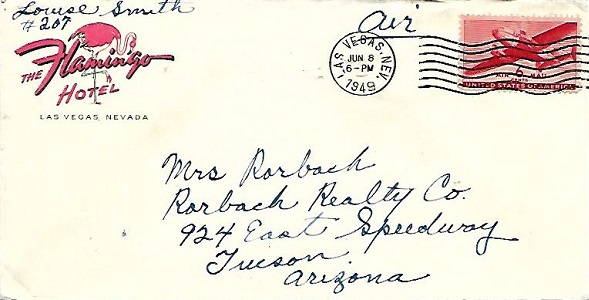 Louise Smith
#207
THE Flamingo
HOTEL
LAS VEGAS, NEVADA
Air
LAS VEGAS, NEV.
JUN 8
6-PM
1949
6
CENTS
AIR MAIL
UNITED STATES OF AMERICA
Mrs Rorbach
Rorbach Realty Co.
924 East Speedway
Tucson
Arizona